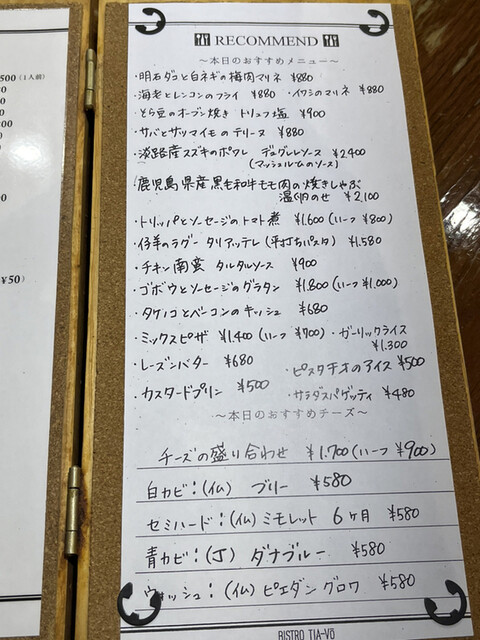 500(1人前)
00
¥50)
RECOMMEND
～本日のおすすめメニュー～
・明石ダコと白ネギの梅肉マリネ ¥880
・海老とレンコンのフライ ¥880 ・イワシのマリネ ¥880
・とら豆のオーブン焼き トリュフ塩 ¥900
・サバとサツマイモのテリーヌ ¥880
・淡路産スズキのポワレ デュグレレソース ¥2400
(マッシュルームのソース)
・鹿児島県産黒毛和牛モモ肉の焼きしゃぶ
温卵のせ ¥2,100
・トリッパとソーセージのトマト煮 ¥1.600(ハーフ ¥800)
・仔羊のラグー タリアッテレ(平打ちパスタ) ¥1.580
・チキン南蛮 タルタルソース ¥900
・ゴボウとソーセージのグラタン ¥1.800(ハーフ ¥1.000)
・タケノコとベーコンのキッシュ ¥680
・ミックスピザ ¥1.400(ハーフ ¥700) ・ガーリックライス
¥1.300
・レーズンバター ¥680
・ピスタチオのアイス ¥500
・カスタードプリン ¥500
・サラダスパゲッティ ¥480
～本日のおすすめチーズ～
チーズの盛り合わせ ¥1.700(ハーフ ¥900)
白カビ:(仏) ブリー ¥580
セミハード:(仏)ミモレット 6ヶ月 ¥580
青カビ:(J) ダナブルー ¥580
ウォッシュ:(仏)ピエダングロワ ¥580
BISTRO TIA-VO